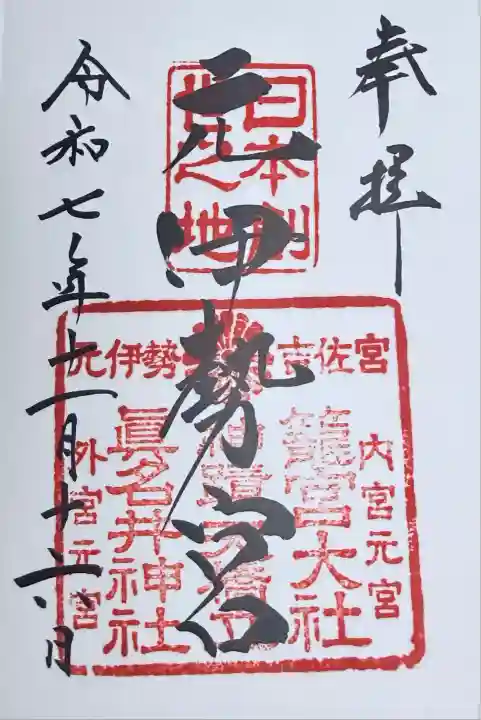 奉拝
日本創
世之地
元伊勢宮
元伊勢 吉佐宮
内宮元宮
籠宮大社
眞名井神社
外宮元宮
令和七年十一月十六日